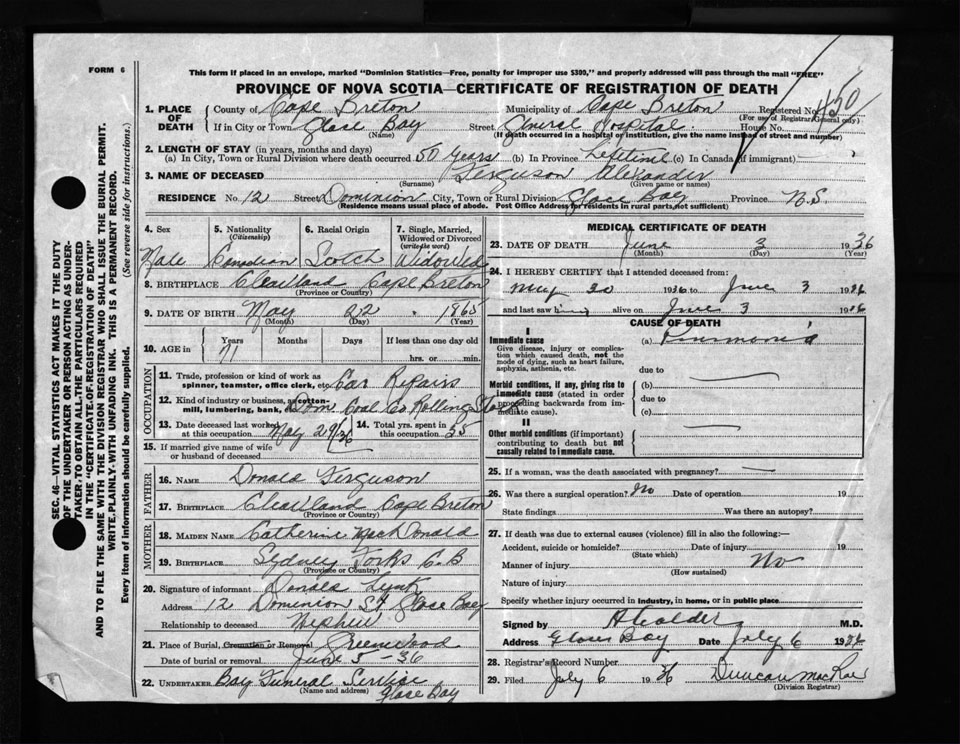 FORM 6
This form if placed in an envelope, marked "Dominion Statistics—Free, penalty for improper use $300," and properly addressed will pass through the mail "FREE"
PROVINCE OF NOVA SCOTIA—CERTIFICATE OF REGISTRATION OF DEATH
SEC. 46—VITAL STATISTICS ACT MAKES IT THE DUTY
OF THE UNDERTAKER OR PERSON ACTING AS UNDER-
TAKER, TO OBTAIN ALL THE PARTICULARS REQUIRED
IN THE "CERTIFICATE OF REGISTRATION OF DEATH"
AND TO FILE THE SAME WITH THE DIVISION REGISTRAR WHO SHALL ISSUE THE BURIAL PERMIT.
WRITE PLAINLY WITH UNFADING INK. THIS IS A PERMANENT RECORD.
Every item of information should be carefully supplied. (See reverse side for instructions.)
1. PLACE OF DEATH
County of Cape Breton Municipality of Cape Breton Registered No. 450
(For use of Registrar General only)
If in City or Town Glace Bay Street General Hospital House No.
(Name) (If death occurred in a hospital or institution, give the name instead of street and number)
2. LENGTH OF STAY (in years, months and days)
(a) In City, Town or Rural Division where death occurred 50 years (b) In Province Lifetime (c) In Canada (if immigrant)
3. NAME OF DECEASED Ferguson Alexander
(Surname) (Given name or names)
RESIDENCE No. 12 Street Dominion City, Town or Rural Division Glace Bay Province N.S.
(Residence means usual place of abode. Post Office Address for residents in rural parts, not sufficient)
4. Sex 5. Nationality (Citizenship) 6. Racial Origin 7. Single, Married, Widowed or Divorced (write the word)
Male Canadian Scotch Widowed
8. BIRTHPLACE Cape Breton
(Province or Country)
9. DATE OF BIRTH May 22 1865
(Month) (Day) (Year)
10. AGE in Years Months Days If less than one day old
71 hrs. or min.
OCCUPATION
11. Trade, profession or kind of work as
spinner, teamster, office clerk, etc. Car Repairs
12. Kind of industry or business, as cotton-
mill, lumbering, bank, Dom. Coal Co Rolling Stock
13. Date deceased last worked at this occupation May 29/36 14. Total yrs. spent in this occupation 55
15. If married give name of wife
or husband of deceased
FATHER
16. NAME Donald Ferguson
17. BIRTHPLACE Cape Breton
(Province or Country)
MOTHER
18. MAIDEN NAME Catherine MacDonald
19. BIRTHPLACE Sydney Forks C.B
(Province or Country)
20. Signature of informant Donald Lynk
Address 12 Dominion St Glace Bay
Relationship to deceased Nephew
21. Place of Burial, Cremation or Removal Greenwood
Date of burial or removal June 5-36
22. UNDERTAKER Bay Funeral Service
(Name and address) Glace Bay
MEDICAL CERTIFICATE OF DEATH
23. DATE OF DEATH June 3 1936
(Month) (Day) (Year)
24. I HEREBY CERTIFY that I attended deceased from:
May 30 1936 to June 3 1936
and last saw him alive on June 3 1936
CAUSE OF DEATH
I
Immediate cause (a) Pneumonia
Give disease, injury or complica-
tion which caused death, not the
mode of dying, such as heart failure,
asphyxia, asthenia, etc. due to
Morbid conditions, if any, giving rise to (b)
immediate cause (stated in order due to
proceeding backwards from im-
mediate cause). (c)
II
Other morbid conditions (if important)
contributing to death but not
causally related to immediate cause.
25. If a woman, was the death associated with pregnancy?
26. Was there a surgical operation? No Date of operation 19
State findings Was there an autopsy?
27. If death was due to external causes (violence) fill in also the following:—
Accident, suicide or homicide? Date of injury 19
(State which)
Manner of injury No
(How sustained)
Nature of injury
Specify whether injury occurred in industry, in home, or in public place
Signed by A Calder M.D.
Address Glace Bay Date July 6 1936
28. Registrar's Record Number
29. Filed July 6 1936 Duncan MacRae
(Division Registrar)